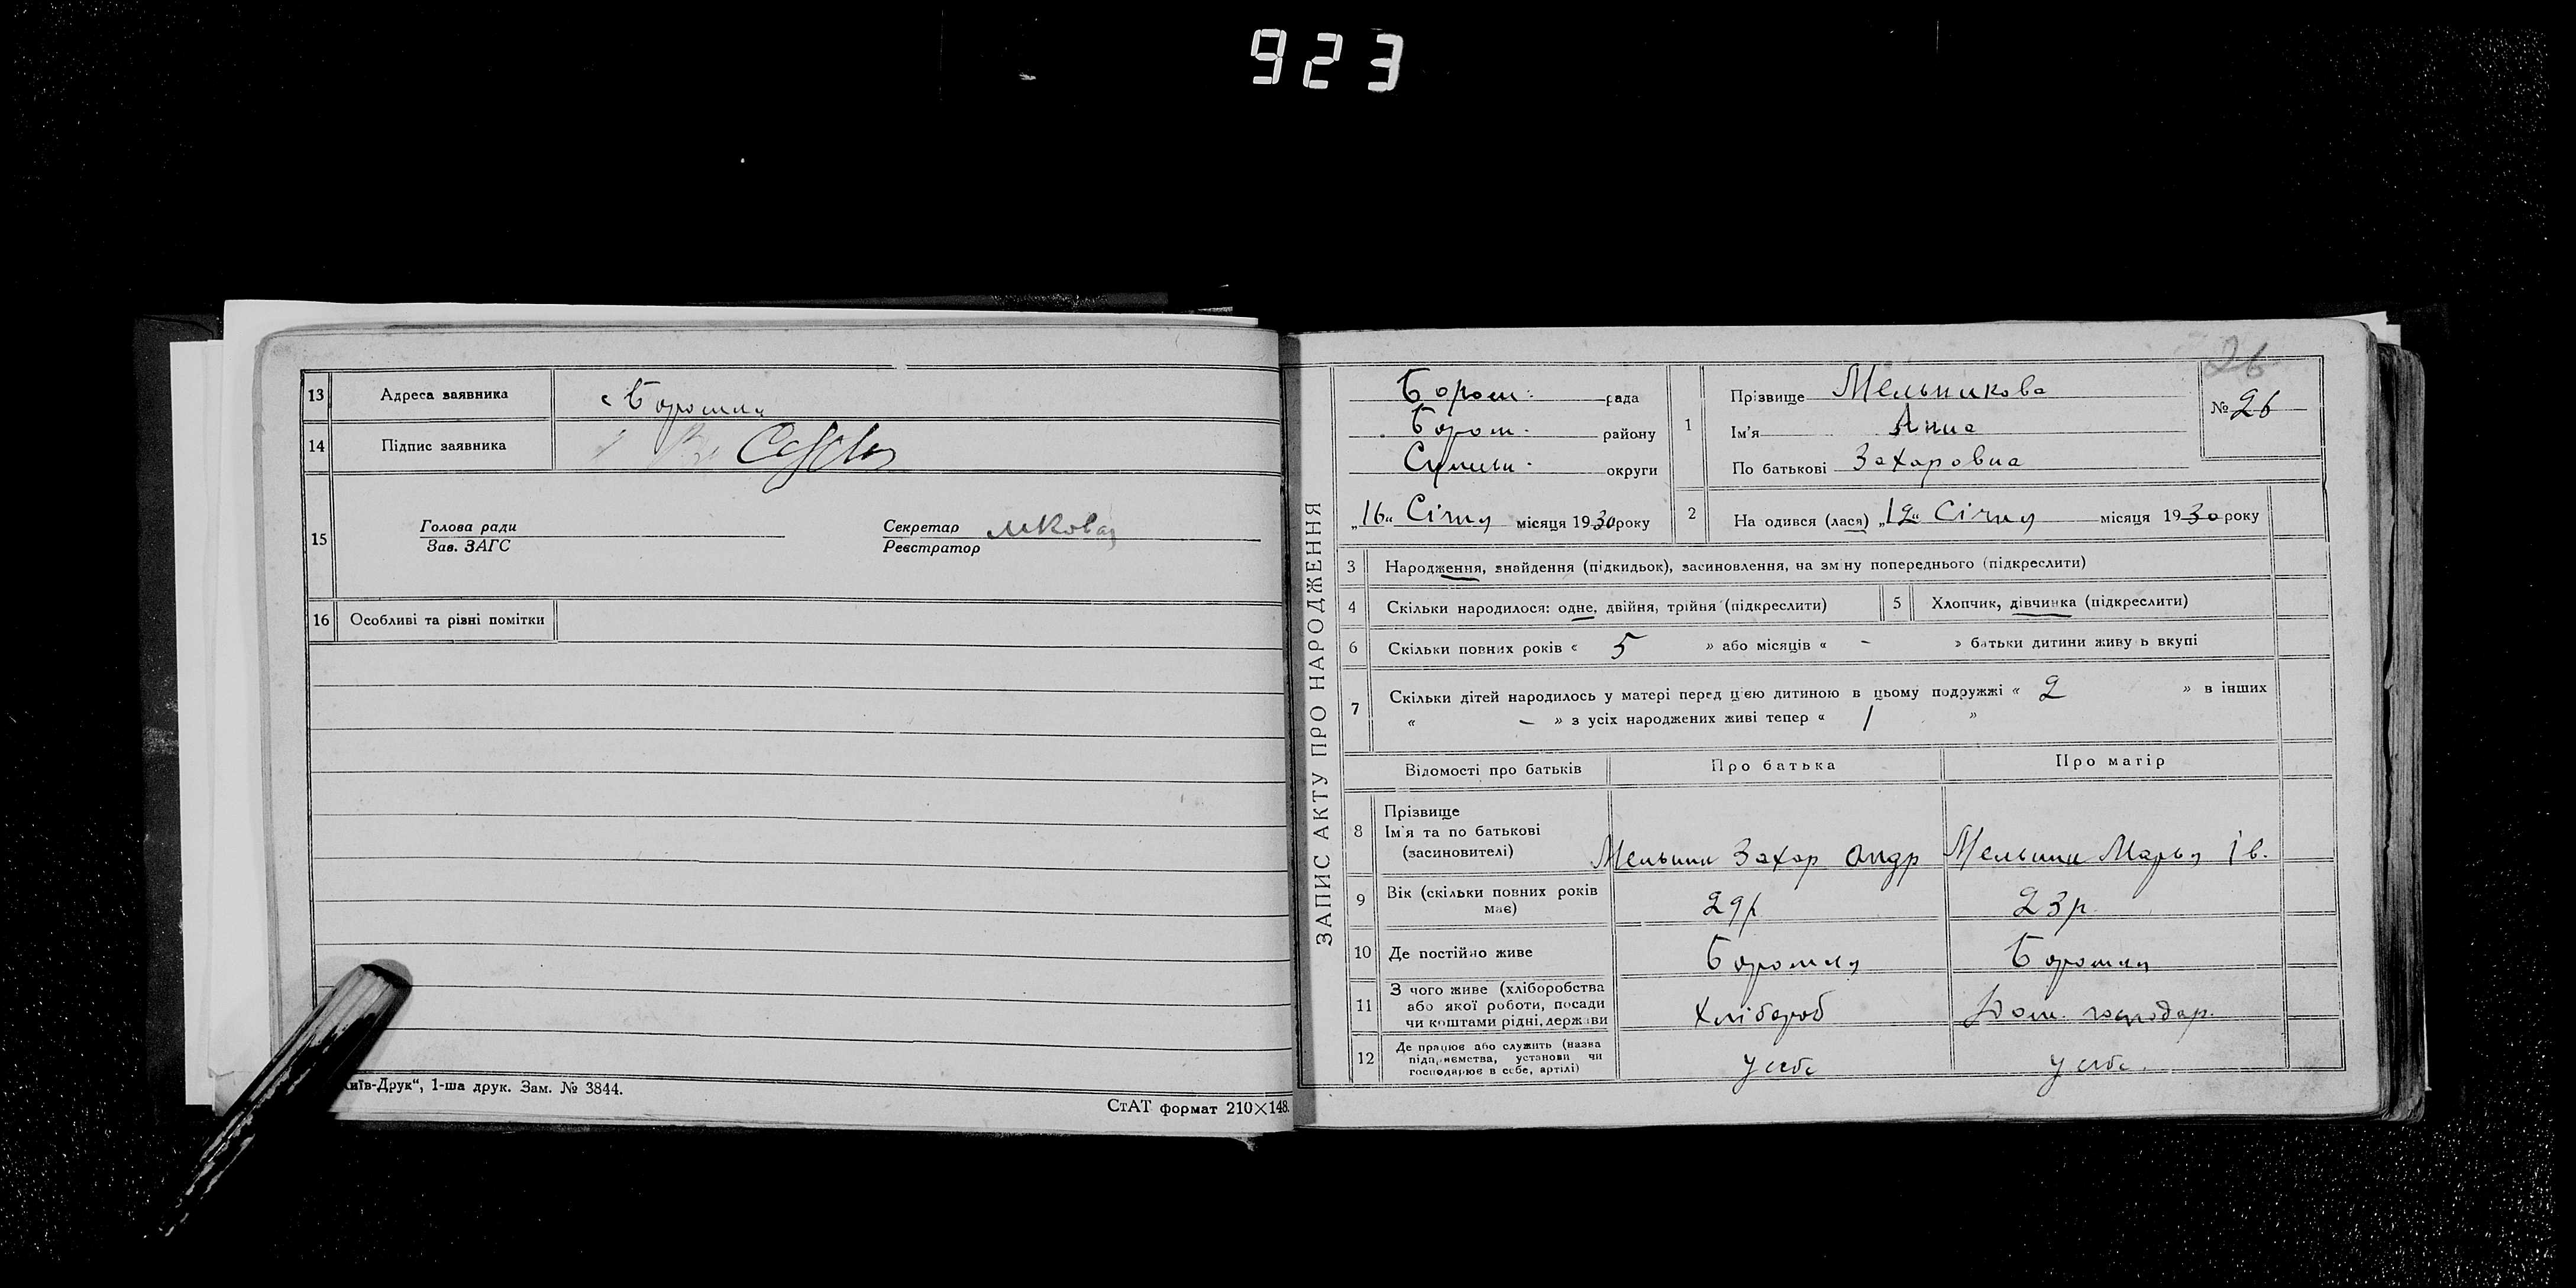 923
13 Адреса заявника с Боромля
14 Підпис заявника
15 Голова ради
Зав. ЗАГС
Секретар
Реєстратор
16 Особливі та різні помітки
иїв-Друк“, 1-ша друк. Зам. № 3844.
СтАТ формат 210×148.
ЗАПИС АКТУ ПРО НАРОДЖЕННЯ
26
Бором. рада
Бором. району
Сумськ. округи
„16„ Січня місяця 1930 року
1 Прізвище Мельникова
Ім'я Анна
По батькові Захаровна
№ 26
2 На одився (лася) „12„ Січня місяця 1930 року
3 Народження, знайдення (підкидьок), засиновлення, на зміну попереднього (підкреслити)
4 Скільки народилося: одне, двійня, трійня (підкреслити)
5 Хлопчик, дівчинка (підкреслити)
6 Скільки повних років « 5 » або місяців « - » батьки дитини живу ь вкупі
7 Скільки дітей народилось у матері перед цією дитиною в цьому подружжі « 2 » в інших
« - » з усіх народжених живі тепер « 1 »
Відомості про батьків Про батька Про матір
8 Прізвище
Ім'я та по батькові
(засиновителі)
Мельник Захар Андр Мельник Марья Ів.
9 Вік (скільки повних років
має)
29р. 23р.
10 Де постійно живе Боромля Боромля
11 З чого живе (хліборобства
або якої роботи, посади
чи коштами рідні, держави
Хлібороб Дом. господар.
12 Де працює або служить (назва
підприємства, установи чи
господарює в себе, артілі)
у себе у себе.